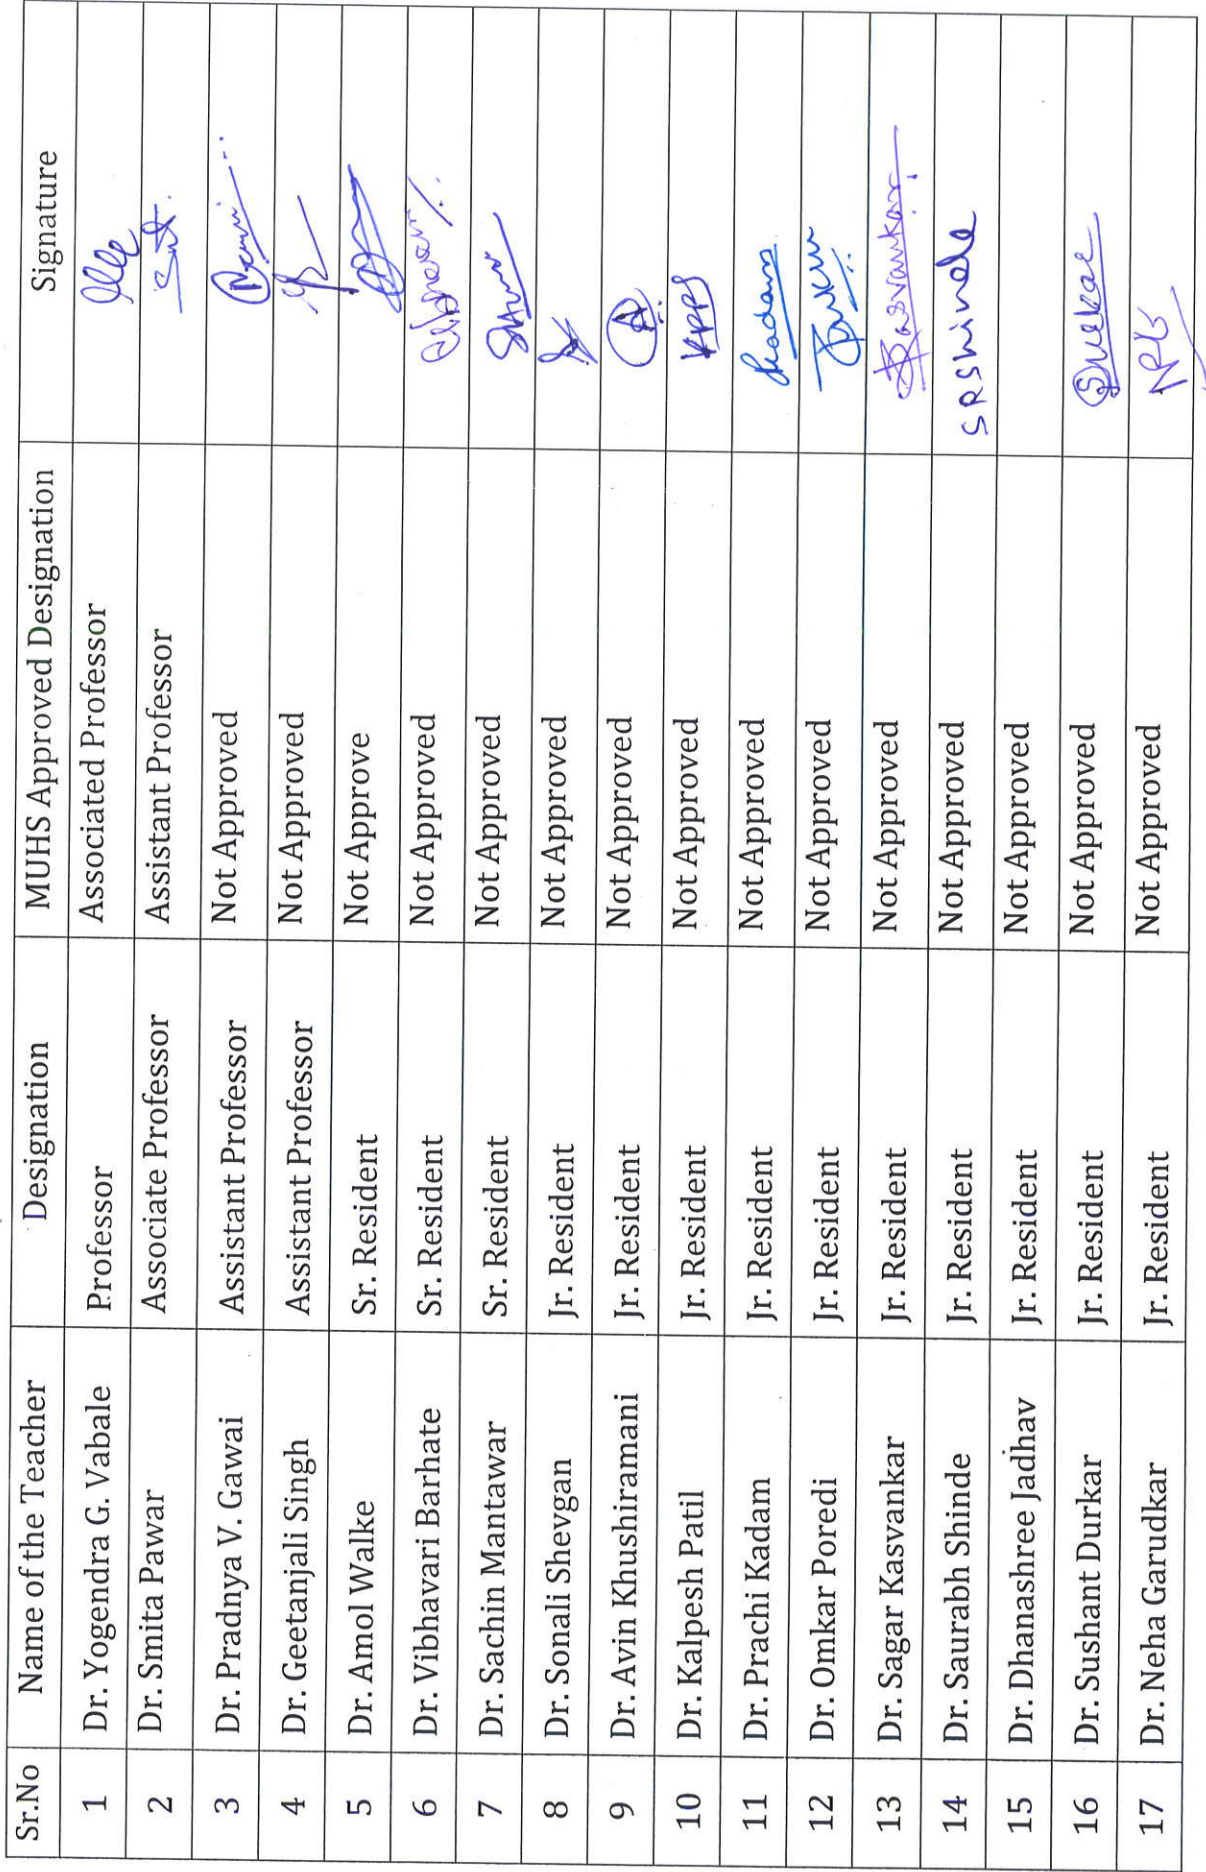 Sr.No Name of the Teacher Designation MUHS Approved Designation Signature
1 Dr. Yogendra G. Vabale Professor Associated Professor
2 Dr. Smita Pawar Associate Professor Assistant Professor
3 Dr. Pradnya V. Gawai Assistant Professor Not Approved
4 Dr. Geetanjali Singh Assistant Professor Not Approved
5 Dr. Amol Walke Sr. Resident Not Approve
6 Dr. Vibhavari Barhate Sr. Resident Not Approved
7 Dr. Sachin Mantawar Sr. Resident Not Approved
8 Dr. Sonali Shevgan Jr. Resident Not Approved
9 Dr. Avin Khushiramani Jr. Resident Not Approved A
10 Dr. Kalpesh Patil Jr. Resident Not Approved
11 Dr. Prachi Kadam Jr. Resident Not Approved
12 Dr. Omkar Poredi Jr. Resident Not Approved
13 Dr. Sagar Kasvankar Jr. Resident Not Approved
14 Dr. Saurabh Shinde Jr. Resident Not Approved SRShinde
15 Dr. Dhanashree Jadhav Jr. Resident Not Approved
16 Dr. Sushant Durkar Jr. Resident Not Approved
17 Dr. Neha Garudkar Jr. Resident Not Approved